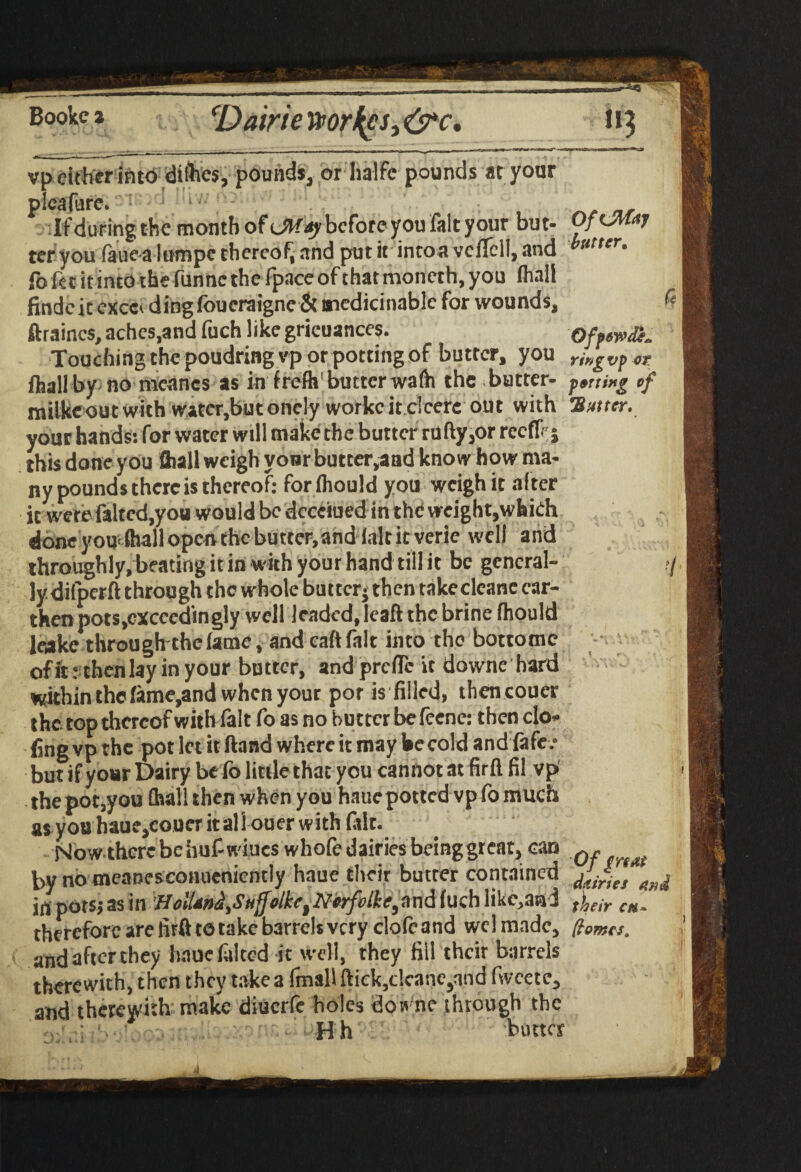 Booke 2 Dairie workes, &c. 113
vp either into dishes, pounds, or halfe pounds at your
pleasure.
If during the month of May before you salt your but-
ter you saue a lumpe thereof, and put it into a vessell, and
so set it into the sunne the space of that moneth, you shall
finde it exceeding soueraigne & medicinable for wounds,
straines, aches, and such like grieuances.
Of May
butter.
Touching the poudring vp or potting of butter, you
shall by no meanes as in fresh butter wash the butter-
milke out with water, but onely worke it cleere out with
your hands: for water will make the butter rusty, or reesse;
this done you shall weigh your butter, and know how ma-
ny pounds there is thereof: for should you weigh it after
it were salted, you would be deceiued in the weight, which
done you shall open the butter, and salt it verie well and
throughly, beating it in with your hand till it be general-
ly disperst through the whole butter; then take cleane ear-
then pots, exceedingly well leaded, least the brine should
leake through the same, and cast salt into the bottome
of it: then lay in your butter, and presse it downe hard
within the same, and when your pot is filled, then couer
the top thereof with salt so as no butter be seene: then clo-
sing vp the pot let it stand where it may be cold and safe:
but if your Dairy be so little that you cannot at first fil vp
the pot, you shall then when you haue potted vp so much
as you haue, couer it all ouer with salt.
Of powde-
ring vp or
potting of
Butter.
Now there be huf-wiues whose dairies being great, can
by no meanes conueniently haue their butter contained
in pots; as in Holland, Suffolke, Norfolke, and such like, and
therefore are first to take barrels very close and wel made,
and after they haue salted it well, they fill their barrels
therewith, then they take a small stick, cleane, and sweete,
and therewith make diuerse holes downe through the
Of great
dairies and
their cu-
stomes.
Hh butter